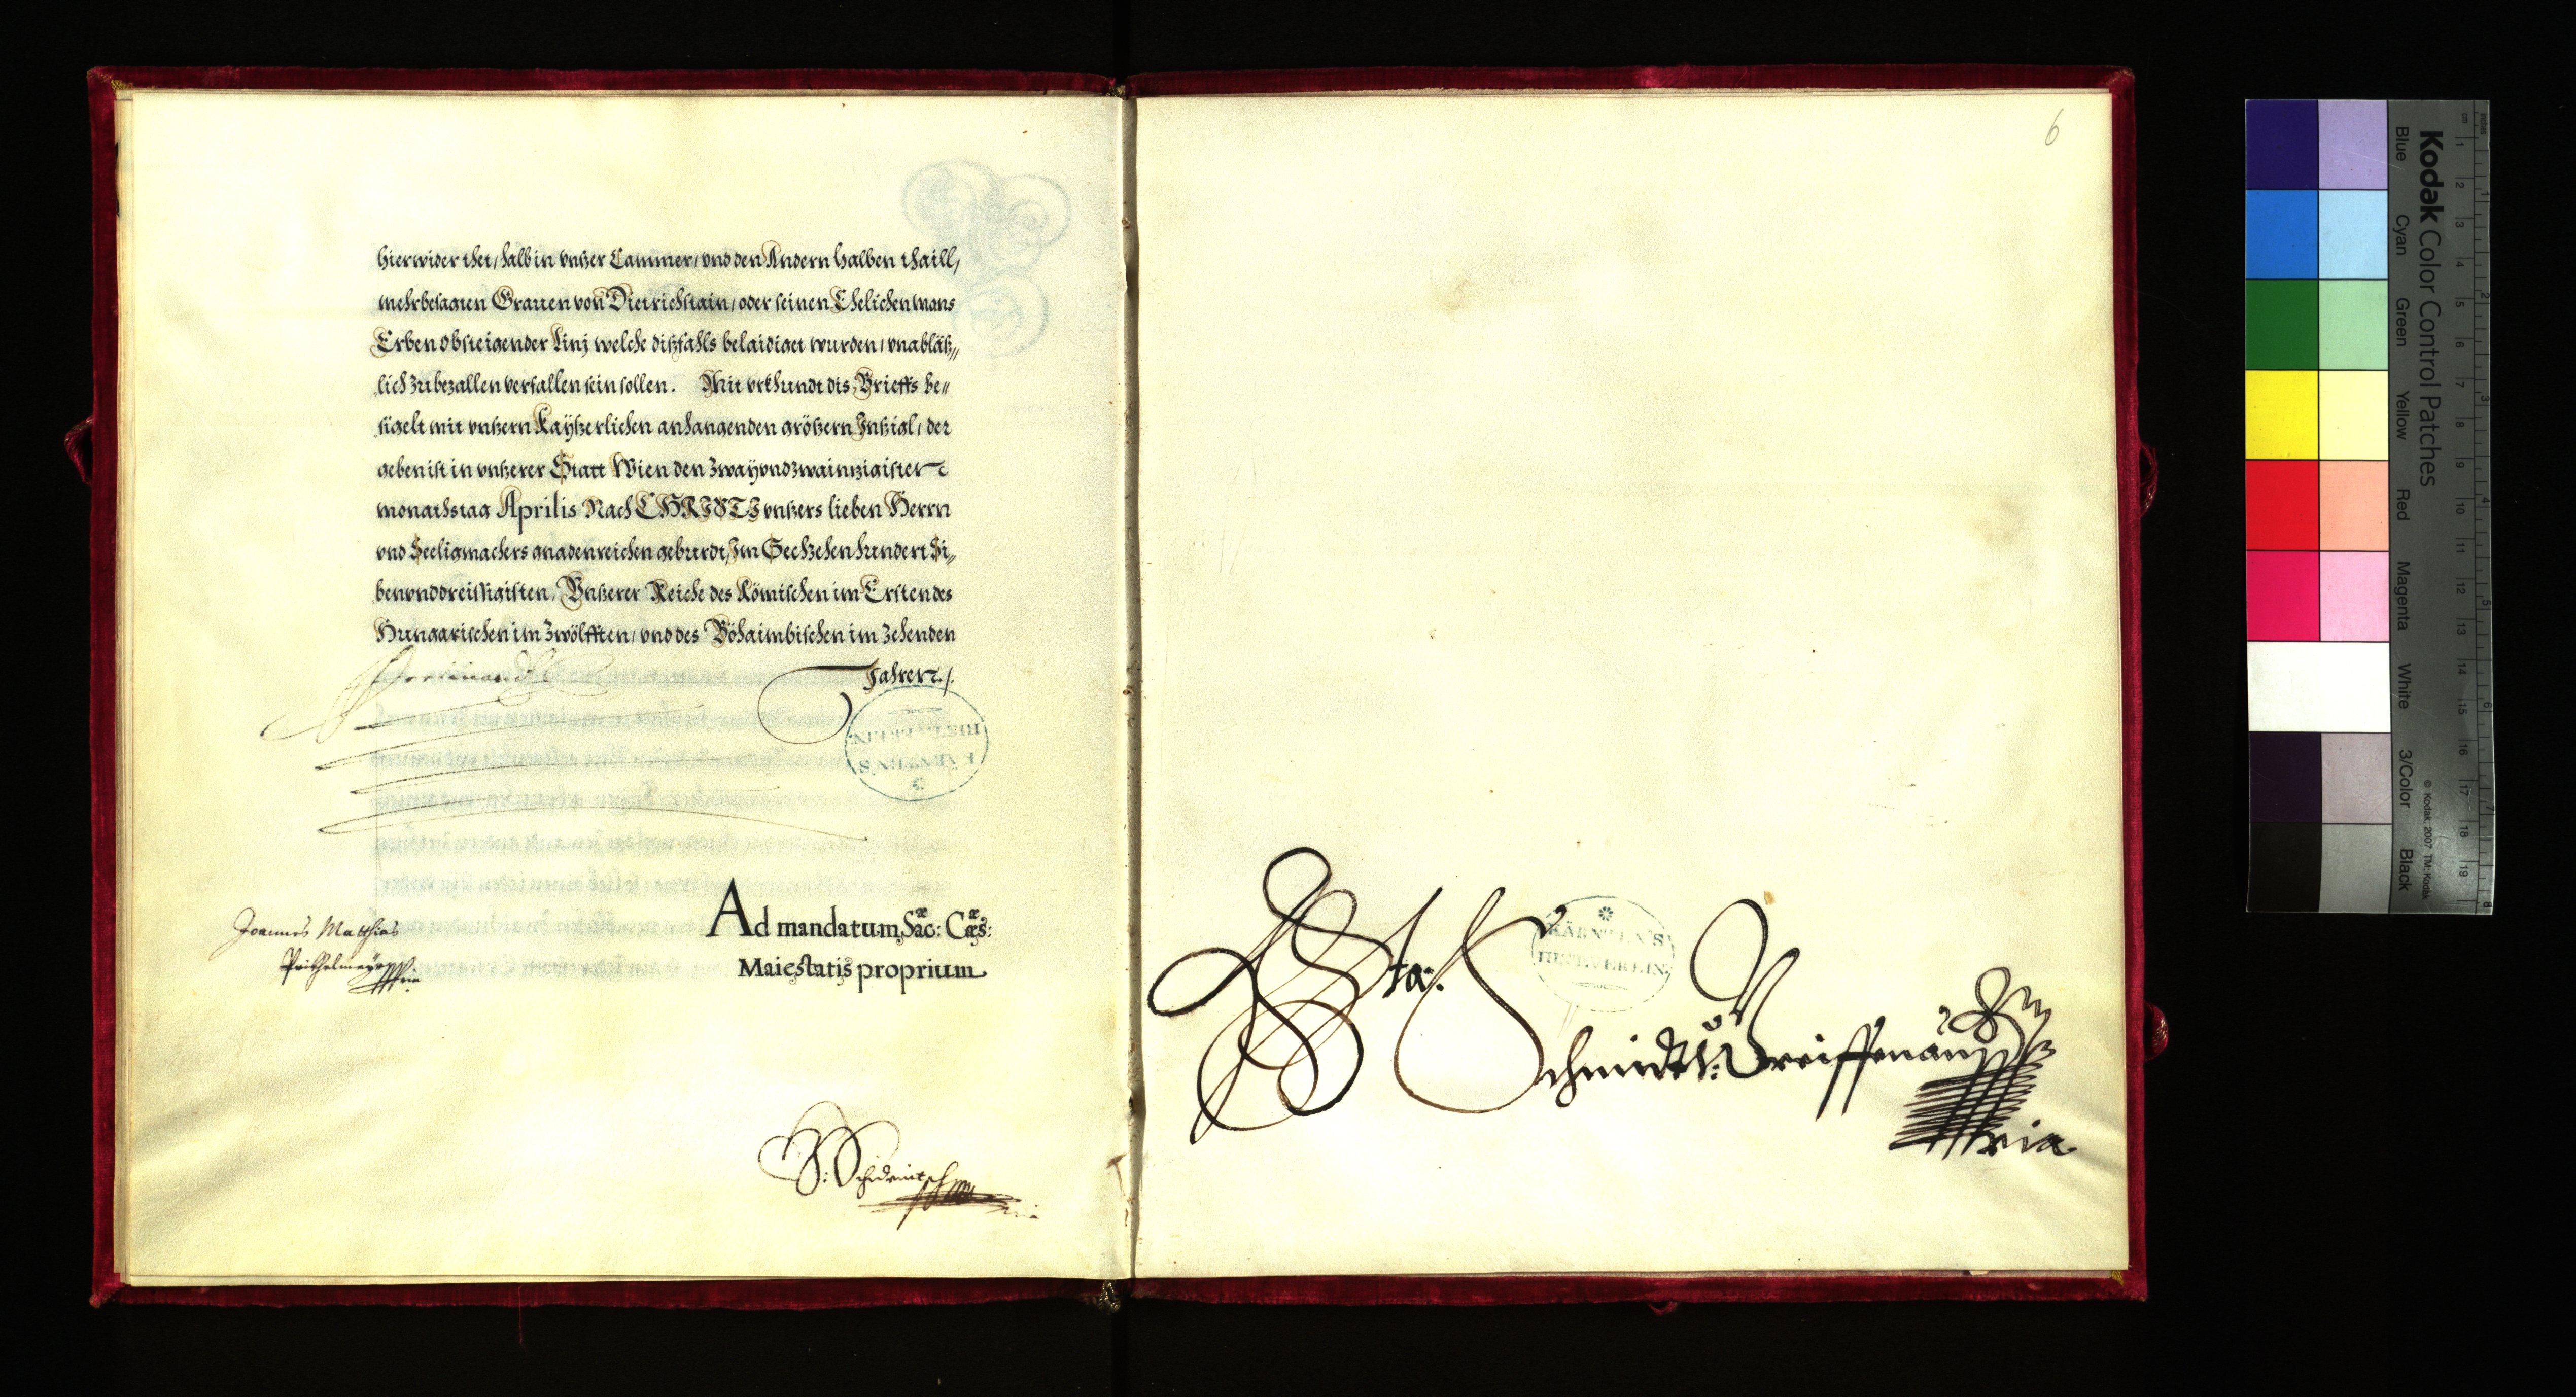 hierwider thet, halb in vnßer Cammer, vnd den Andern halben thaill,
mehrbesagten Grauen von Dietrichstain, oder seinen Ehelichen Mans
Erben absteigender Linj welche dißfahls belaidiget wurden, vnabläß„
lich zu bezallen verfallen sein sollen. Mit vrkhundt dis Brieffs be„
sigelt mit vnßern Kayßerlichen anhangenden größern Inßigl, der
geben ist in vnßerer Statt Wien den zwayvndzwainzigisten
monathstag Aprilis Nach CHRISTI vnßers lieben Herrn
vnd Seeligmachers gnadenreichen geburdt, Im Sechzehenhundert Si„
benvnddreissigisten, Vnßerer Reiche des Römischen im Ersten des
Hungarischen im Zwölfften, vnd des Böhaimbischen im zehenden
Jahren ./.
Ferdinandt
KÄRNTEN'S
HIST. VEREIN.
Ad mandatum Sacæ: Cæsæ:
Maiestatis proprium
Joannes Matthias
Prikhelmayr mpria
6
KÄRNTEN'S
HIST. VEREIN.
ta:
Schmidt v: Greiffenau
mpria
Kodak Color Control Patches
Blue Cyan Green Yellow Red Magenta White 3/Color Black
© Kodak, 2007 TM: Kodak
inches 1 2 3 4 5 6 7 8
cm 1 2 3 4 5 6 7 8 9 10 11 12 13 14 15 16 17 18 19